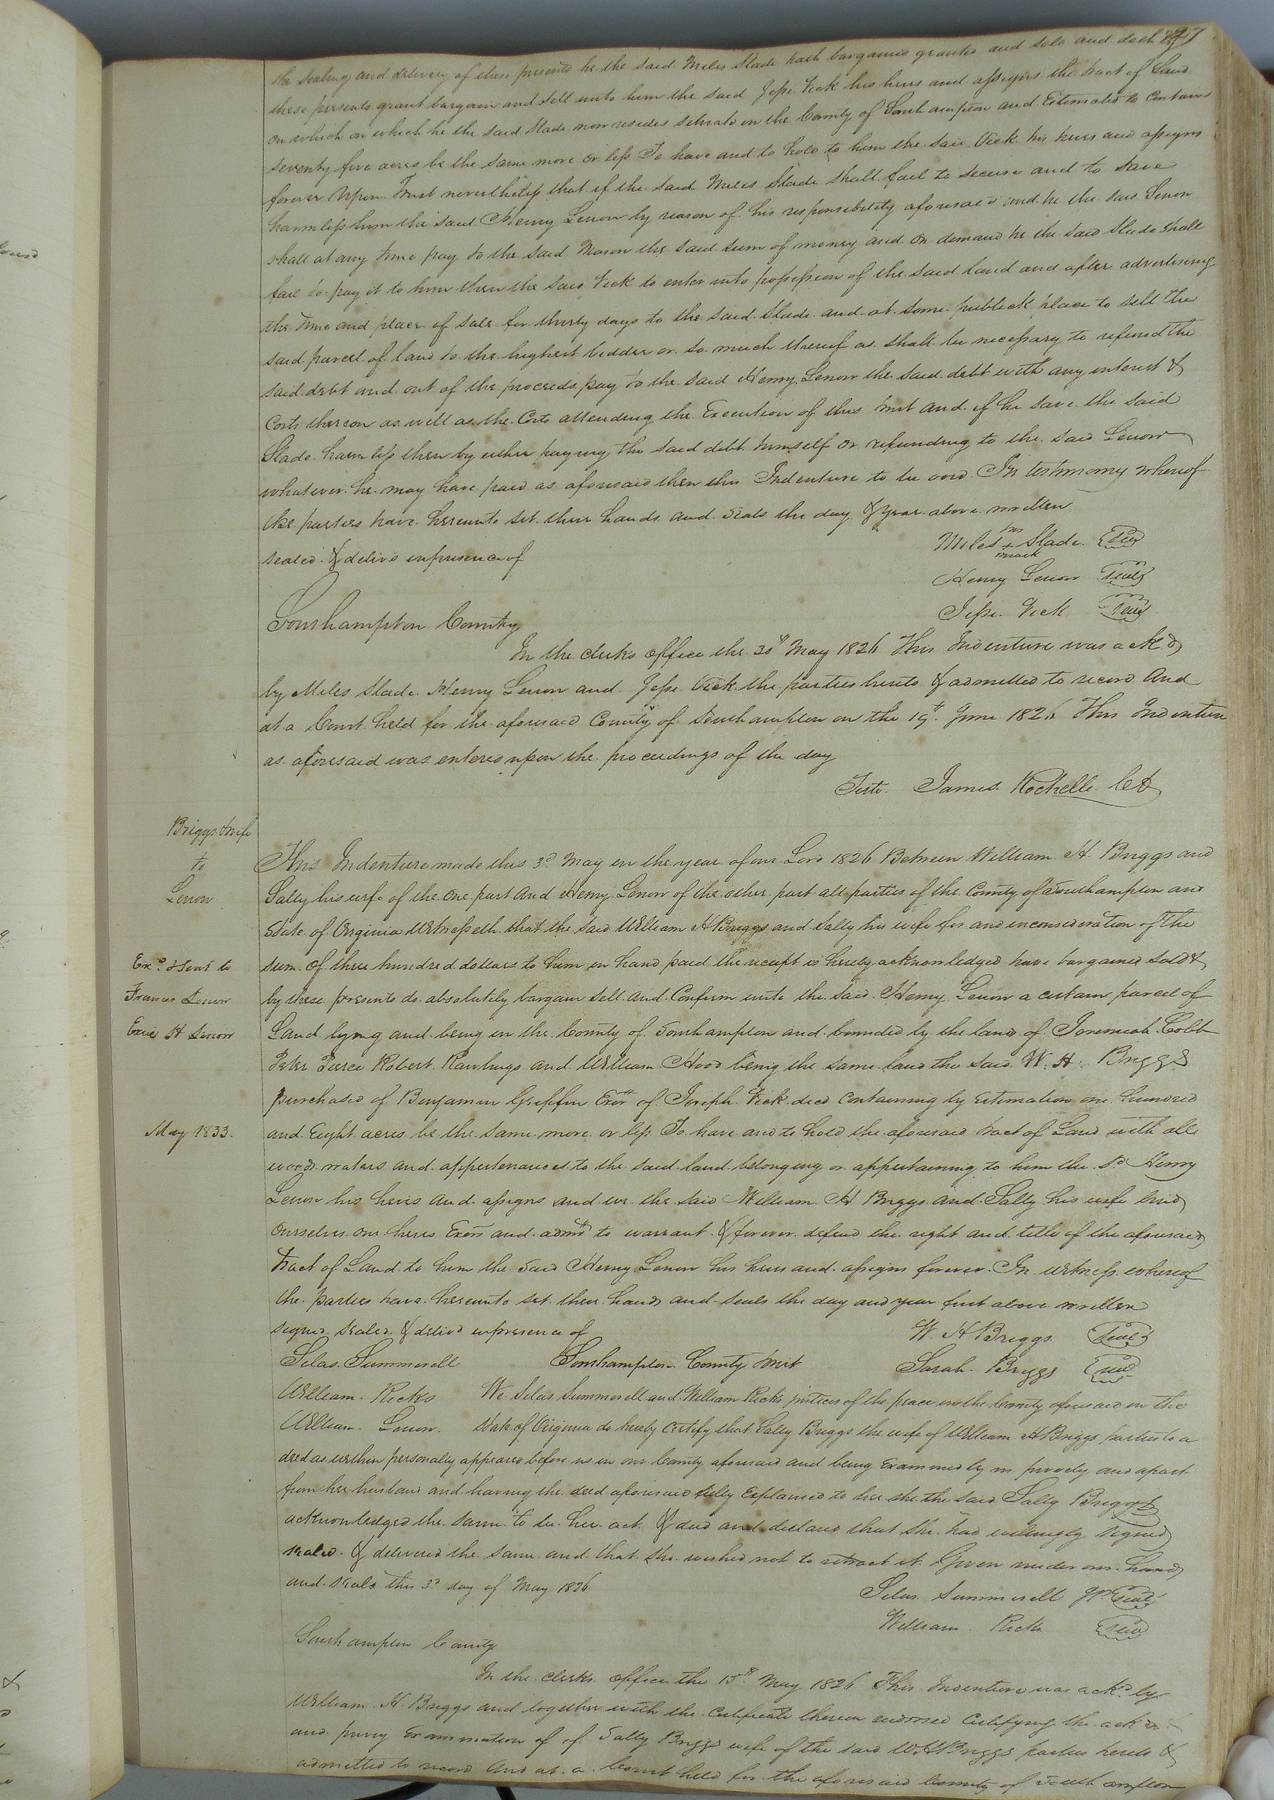 the sealing and delivery of these presents he the said Miles Slade hath bargained granted and sold and doth by
these presents grant bargain and sell unto him the said Jesse Vick his heirs and assigns the tract of Land
on which on which he the said Slade now resides situate in the County of Southampton and Estimated to Contain
seventy five acres be the same more or less To have and to hold to him the said Vick his heirs and assigns
forever Upon Trust nevertheless that if the said Miles Slade shall fail to secure and to save
harmless him the said Henry Lenow by reason of his responsibility aforesaid and he the said Lenow
shall at any time pay to the said Mason the said sum of money and on demand he the said Slade shall
fail to pay it to him then the said Vick to enter into possession of the said land and after advertising
the time and place of sale for thirty days to the said Slade and at some publick place to sell the
said parcel of land to the highest bidder or so much thereof as shall be necessary to refund the
said debt and out of the proceeds pay to the said Henry Lenow the said debt with any interest &
Costs thereon as well as the Costs attending the Execution of this trust and if he save the said
Slade harmless then by either paying the said debt himself or refunding to the said Lenow
whatever he may have paid as aforesaid then this Indenture to be void In testimony whereof
the parties have hereunto set their hands and seals the day & year above written
sealed & delivd in presence of
Miles his + mark Slade Seal
Henry Lenow Seal
Jesse Vick Seal
Southampton County
In the clerks office the 30th May 1826 This Indenture was ackd
by Miles Slade Henry Lenow and Jesse Vick the parties hereto & admitted to record And
at a Court held for the aforesaid County of Southampton on the 19th June 1826 This Indenture
as aforesaid was entered upon the proceedings of the day
Teste James Rochelle
Briggs & wife
to
Lenow
Exd & sent to
Francis Lenow
May 1833.
This Indenture made this 3d May in the year of our Lord 1826 Between William H Briggs and
Sally his wife of the one part And Henry Lenow of the other part all parties of the County of Southampton and
State of Virginia Witnesseth that the said William H Briggs and Sally his wife for and in consideration of the
sum of three hundred dollars to him in hand paid the receipt is hereby acknowledged have bargained sold &
by these presents do absolutely bargain sell and Confirm unto the said Henry Lenow a certain parcel of
Land lying and being in the County of Southampton and bounded by the lands of Jeremiah Cobb
Peter Pierce Robert Rawlings and William Hood being the same land the said W. H. Briggs
purchased of Benjamin Griffin Exor of Joseph Vick decd Containing by Estimation one hundred
and Eight acres be the same more or less To have and to hold the aforesaid tract of Land with all
woods waters and appertenances to the said land belonging or appertaining to him the sd Henry
Lenow his heirs and assigns and we the said William H Briggs and Sally his wife bind
ourselves our heirs Exors and admrs to warrant & forever defend the right and title of the aforesaid
tract of Land to him the said Henry Lenow his heirs and assigns forever In witness whereof
the parties have hereunto set their hands and seals the day and year first above written
signed sealed & delivd in presence of
W H Briggs Seal
Silas Summerell Southampton County Sarah Briggs Seal
William Ricks We Silas Summerell and William Ricks justices of the peace in the County aforesaid in the
William Lenow State of Virginia do hereby certify that Sally Briggs the wife of William H Briggs parties to a
deed as within personally appeared before us in our County aforesaid and being Examined by us privily and apart
from her husband and having the deed aforesaid fully Explained to her she the said Sally Briggs
acknowledged the same to be her act & deed and declared that she had willingly signed
sealed & delivered the same and that she wished not to retract it Given under our hands
and seals this 3d day of May 1826
Silas Summerell JP Seal
William Ricks Seal
Southampton County
In the clerks office the 15th May 1826 This Indenture was ackd by
William H Briggs and together with the Certificate thereon endorsed Certifying the ackd
and privy Examination of of Sally Briggs wife of the said W H Briggs parties hereto &
admitted to record And at a Court held for the aforesaid County of Southampton